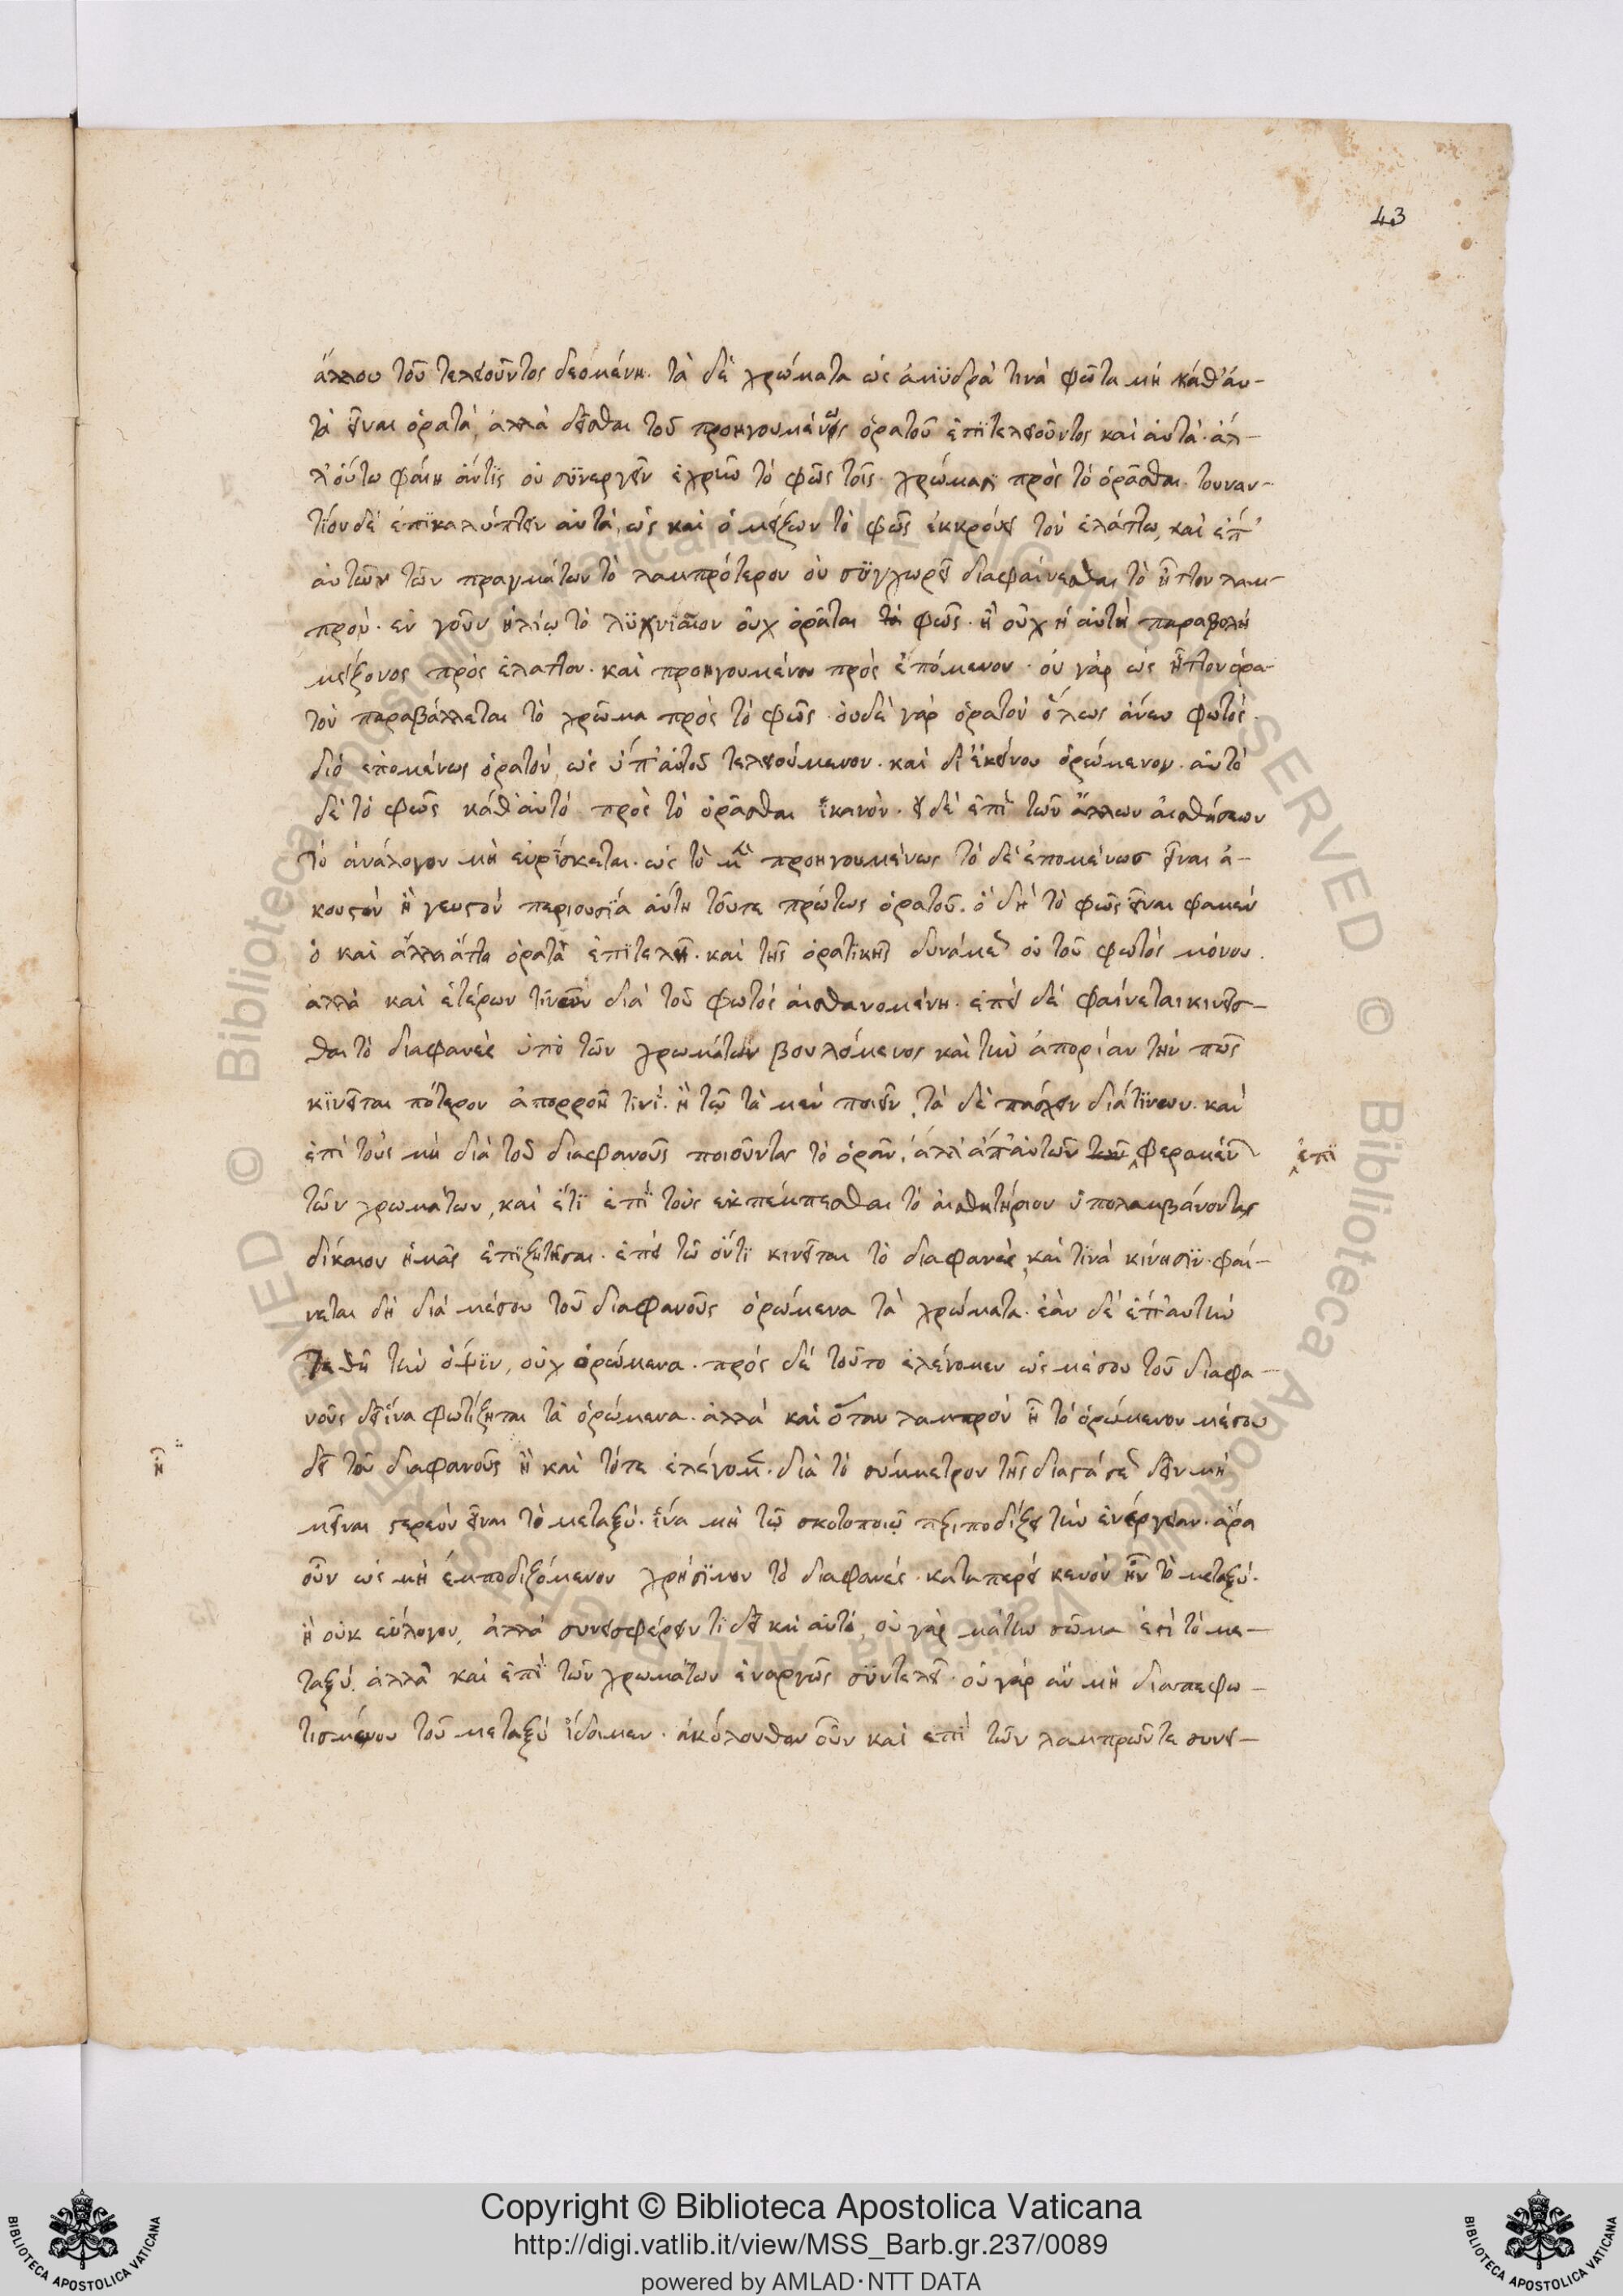 43
ἄλλου τοῦ τελειοῦντος δεομένη. τὰ δὲ χρώματα ὡς ἀμϋδρὰ τινὰ φῶτα μὴ κάθ' ἀυ-
τὰ εἶναι ὁρατά, ἀλλὰ δεῖσθαι τοῦ προηγουμένως ὁρατοῦ ἐπιτελειοῦντος καὶ ἀυτά. ἀλ-
λ' όύτω φαίη ἄντις οὐ σϋνεργεῖν ἐχρῆν τὸ φῶς τοῖς χρώμασι πρὸς τὸ ὁρᾶσθαι. τουναν-
τίον δὲ ἐπϊκαλύπτειν ἀυτὰ, ὡς καὶ ὁ μείζων τὸ φῶς ἐκκρούει τὸν ἐλάττω, καὶ ἐπ'
ἀυτῶν τῶν πραγμάτων τὸ λαμπρότερον οὐ σϋγχωρεῖ διαφαίνεσθαι τὸ ἧττον λαμ-
πρόν. ἐν γοῦν ἡλίῳ τὸ λϋχνιαῖον οὐχ ὁρᾶται φῶς. ἢ οὐχ ἡ ἀυτὴ παραβολὴ
μείζονος πρὸς ἔλαττον. καὶ προηγουμένου πρὸς ἑπόμενον. οὐ γὰρ ὡς ἧττον ὁρα-
τὸν παραβάλλεται τὸ χρῶμα πρὸς τὸ φῶς. ὀυδὲ γὰρ ὁρατὸν ὅλως ἄνευ φωτός.
διὸ ἑπομένως ὁρατὸν, ὡς ὑπ' ἀυτοῦ τελειούμενον. καὶ δι' ἐκείνου ὁρώμενον. ἀυτὸ
δὲ τὸ φῶς κάθ' ἀυτὸ πρὸς τὸ ὁρᾶσθαι ἱκανὸν. εἰ δὲ ἐπὶ τῶν ἄλλων ἀισθήσεων
τὸ ἀνάλογον μὴ εὑρίσκεται. ὡς τὸ μὲν προηγουμένως τὸ δὲ ἑπομένως εἶναι ἀ-
κουστὸν ἢ γευστὸν περιουσία ἀύτη τοῦτε πρώτως ὁρατοῦ. ὁ δὴ τὸ φῶς εἶναι φαμὲν
ὁ καὶ ἄλλα ἄττα ὁρατὰ ἐπιτελεῖ. καὶ τῆς ὁρατικῆς δυνάμεως οὐ τοῦ φωτὸς μόνου.
ἀλλὰ καὶ ἑτέρων τινῶν διὰ τοῦ φωτὸς ἀισθανομένη. ἐπεὶ δὲ φαίνεται κινεῖσ-
θαι τὸ διαφανὲς ὑπὸ τῶν χρωμάτων βουλόμενος καὶ τὴν ἀπορίαν τὴν πῶς
κϊνεῖται πότερον ἀπορροῇ τινί. ἢ τῷ τὰ μὲν ποιεῖν, τὰ δὲ πάσχειν διά τϊνων. καὶ
ἐπὶ τοὺς μὴ διὰ τοῦ διαφανοῦς ποιοῦντας τὸ ὁρᾶν, ἀλλ' ἀπ' ἀυτῶν φερομένων ἐπὶ
τῶν χρωμάτων, καὶ ἔτϊ ἐπὶ τοὺς ἐκπέμπεσθαι τὸ ἀισθητήριον ὑπολαμβάνοντας
δίκαιον ἡμᾶς ἐπϊζητῆσαι. ἐπεὶ τῷ ὄντϊ κινεῖται τὸ διαφανὲς, καὶ τϊνὰ κίνησϊν. φαί-
νεται δὴ διὰ μέσου τοῦ διαφανοῦς ὁρώμενα τὰ χρώματα. ἐὰν δὲ ἐπ' ἀυτὴν
τεθῇ τὴν ὄψϊν, οὐχ ὁρώμενα. πρὸς δὲ τοῦτο ἐλέγομεν ὡς μέσου τοῦ διαφα-
νοῦς δεῖ ἵνα φωτίζηται τὰ ὁρώμενα. ἀλλὰ καὶ ὅταν λαμπρὸν ᾖ τὸ ὁρώμενον μέσου
δεῖ τοῦ διαφανοῦς ἢ καὶ τότε ἐλέγομεν. διὰ τὸ σύμμετρον τῆς διαστάσεως δεῖν μὴ
ἢ
στερεὸν εἶναι τὸ μεταξύ. ἵνα μὴ τῷ σκοτοποιῷ τὴν ἐνέργειαν. ἆρα
οὖν ὡς μὴ ἐμποδιζόμενον χρήσϊμον τὸ διαφανές. καταπερεὶ κενὸν ἦν τὸ μεταξύ.
ἢ οὐκ εὔλογον, ἀλλὰ συνεισφέρειν τὶ δεῖ καὶ ἀυτό, οὐ γὰρ μάτην σῶμα ἐστὶ τὸ με-
ταξύ. ἀλλὰ καὶ ἐπὶ τῶν χρωμάτων ἐναργῶς σϋντελεῖ. οὐ γὰρ ἂν μὴ διαπεφω-
τισμένου τοῦ μεταξὺ ἴδοιμεν. ἀκόλουθον οὖν καὶ ἐπὶ τῶν λαμπρῶν τε συνει-
Copyright © Biblioteca Apostolica Vaticana
http://digi.vatlib.it/view/MSS_Barb.gr.237/0089
powered by AMLAD·NTT DATA
BIBLIOTECA APOSTOLICA VATICANA
BIBLIOTECA APOSTOLICA VATICANA